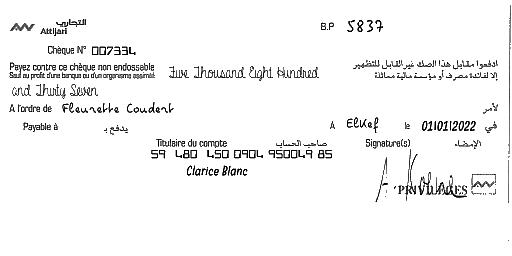 التجاري
Attijari
B.P 5837
Chèque N° 007334
Payez contre ce chèque non endossable
Seuf au profit d'une banque ou d'un organisme assimilé
Five Thousand Eight Hundred
ادفعوا مقابل هذا الصك غير القابل للتظهير
إلا لفائدة مصرف أو مؤسسة مالية مماثلة
and Thirty Seven
A l'ordre de Fleurette Coudert
لأمر
Payable à
يدفع بـ
A ElKef le 01/01/2022 في
Titulaire du compte صاحب الحساب
Signature(s) الإمضاء
59 480 450 0904 950049 85
Clarice Blanc
PRIVILEGES